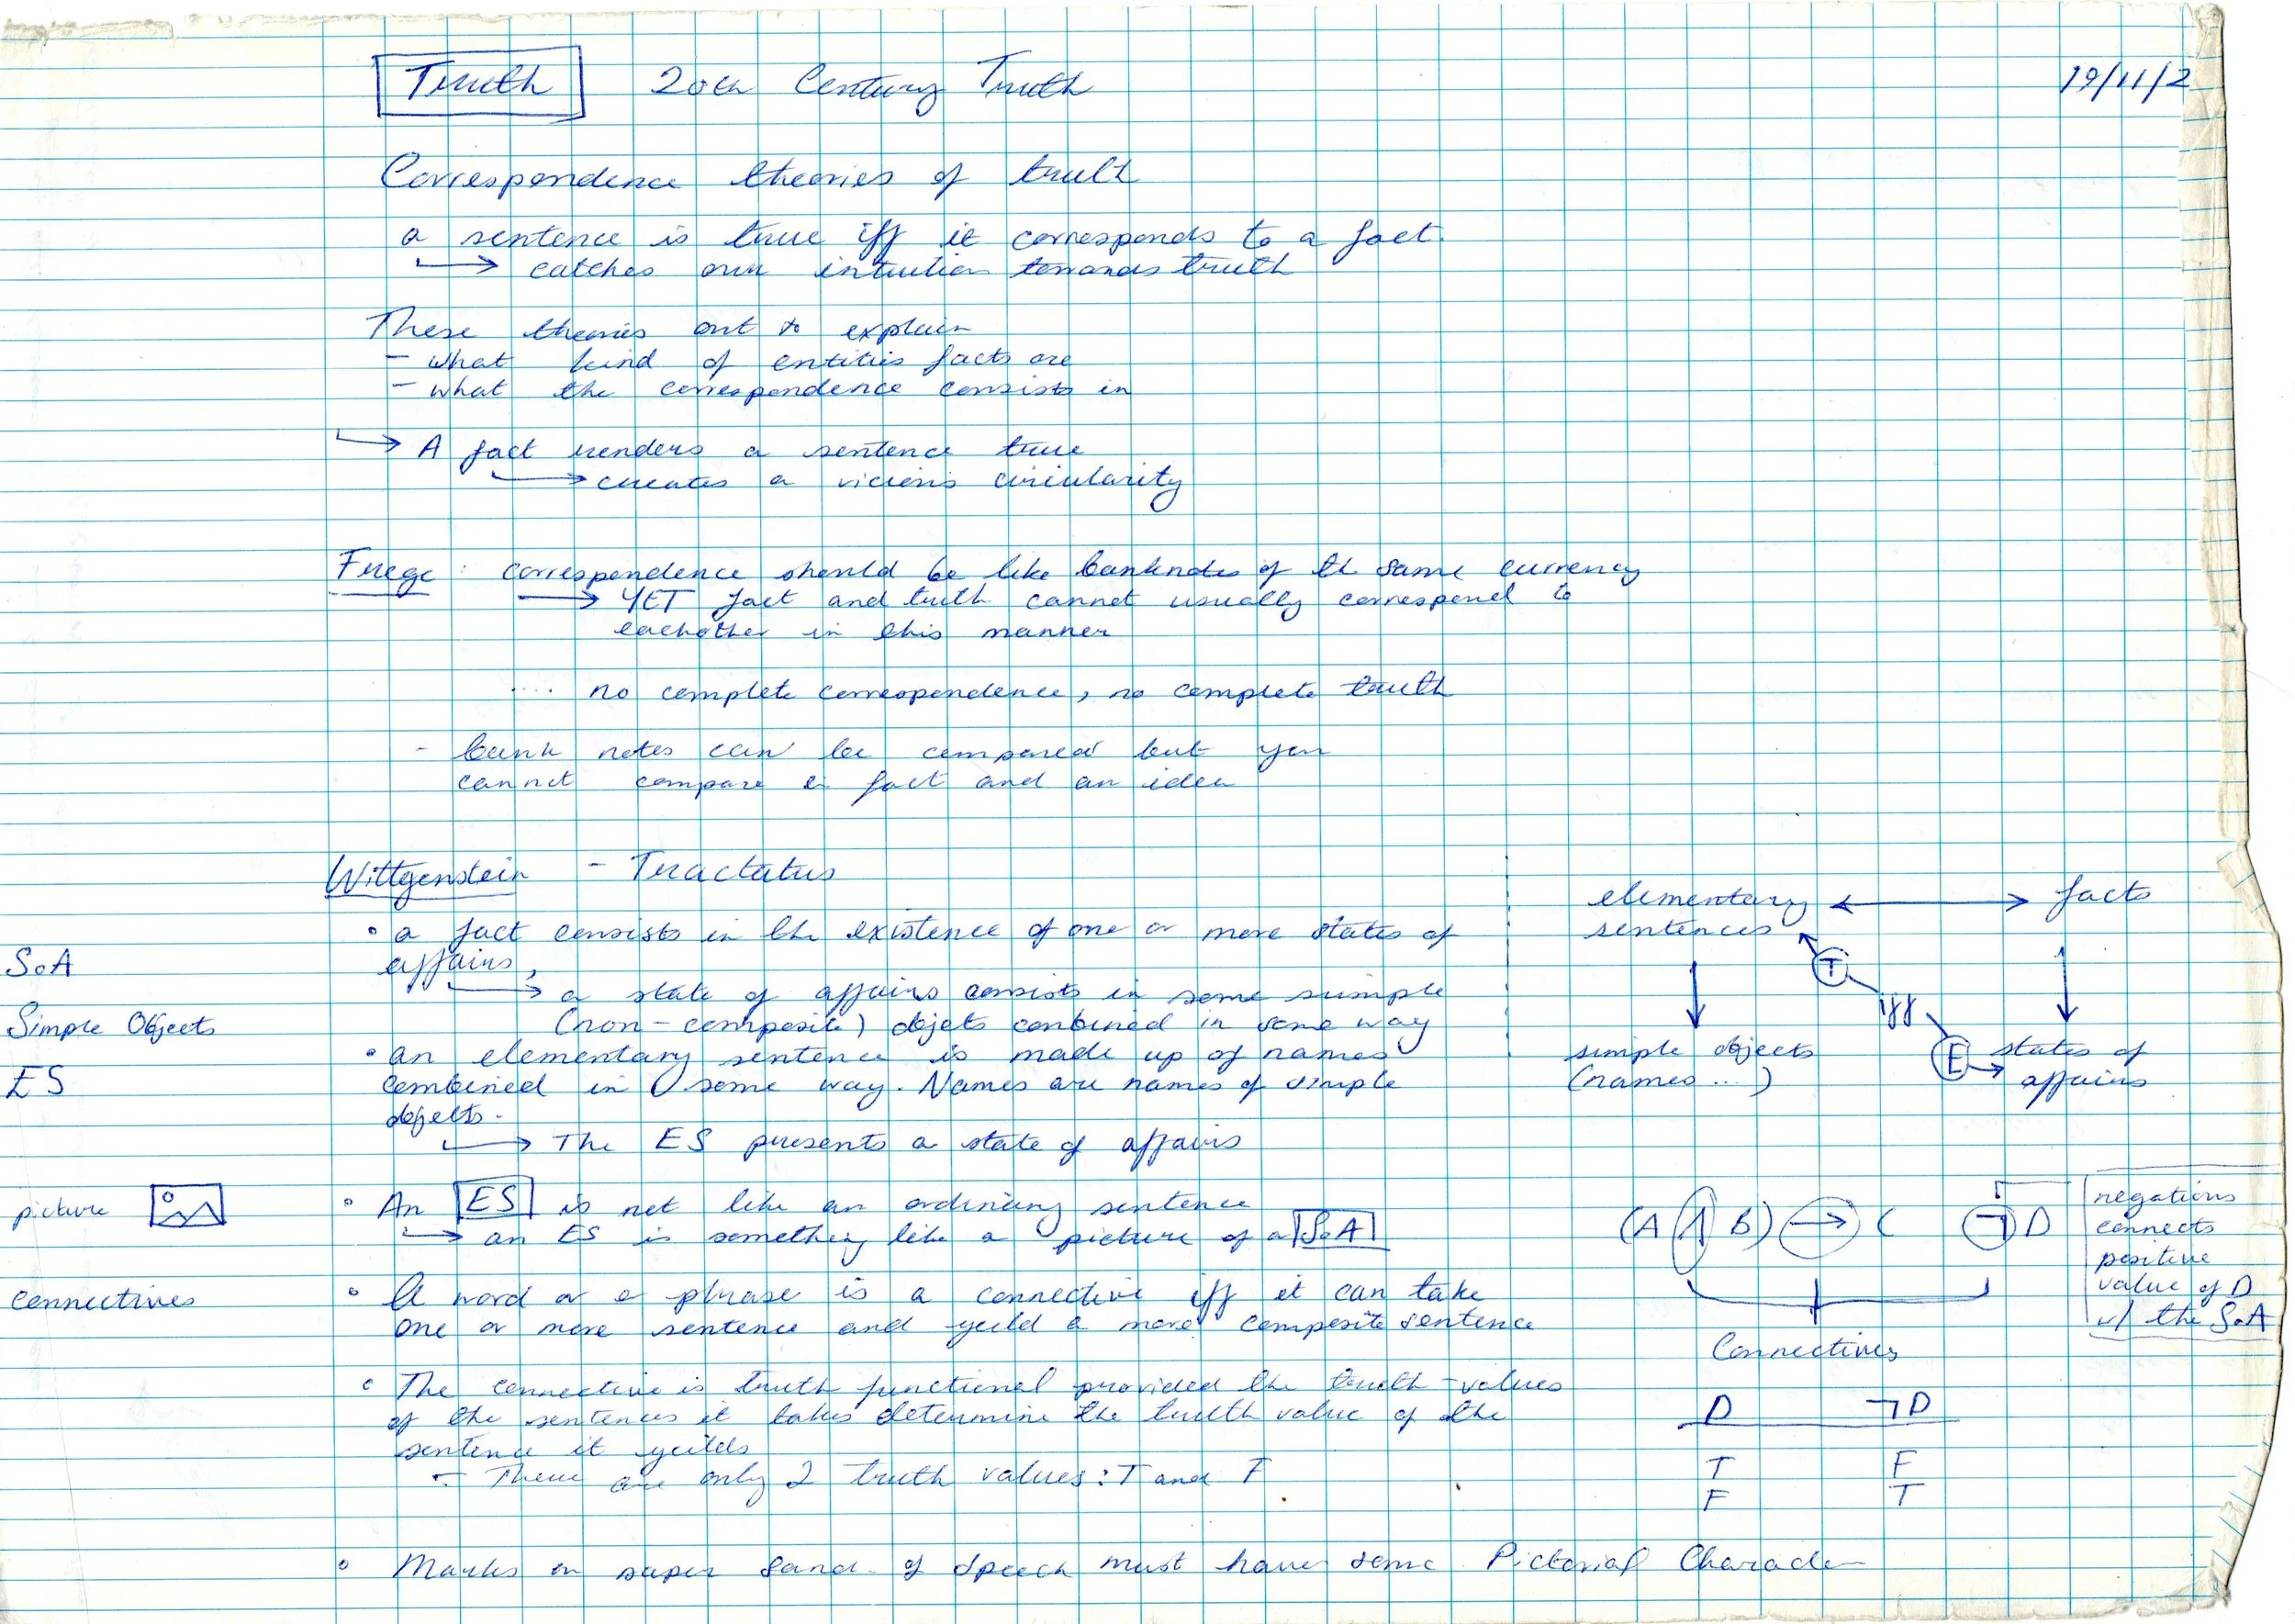 Truth 20th Century Truth 19/11/2
Correspondence theories of truth
a sentence is true iff it corresponds to a fact.
→ catches our intuition towards truth
These theories out to explain
- what kind of entities facts are
- what the correspondence consists in
→ A fact renders a sentence true
→ creates a vicious circularity
Frege: correspondence should be like banknotes of th same currency
→ YET fact and truth cannot usually correspond to
eachother in this manner
.... no complete correspondence, no complete truth
- bank notes can be compared but you
cannot compare a fact and an idea
Wittgenstein - Tractatus
• a fact consists in the existence of one or more states of
SoA
affairs,
→ a state of affairs consists in some simple
Simple Objects
(non-composite) objets combined in some way
• an elementary sentence is made up of names
ES
combined in some way. Names are names of simple
objects.
→ The ES presents a state of affairs
elementary ↔ facts
sentences
T
iff
simple objects E → states of
(names ...) affairs
picture
• An ES is not like an ordinary sentence
→ an ES is something like a picture of a SoA
(A ∧ B) → C ¬D
negations
connects
positive
value of D
w/ the SoA
Connectives
connectives
• A word or a phrase is a connective iff it can take
one or more sentence and yeild a more composite sentence
• The connective is truth functional provided the truth-values
of the sentences it takes determine the truth value of the
sentence it yeilds
- There are only 2 truth values: T and F
D ¬D
T F
F T
• Marks on paper of speech must have some Pictorial Character